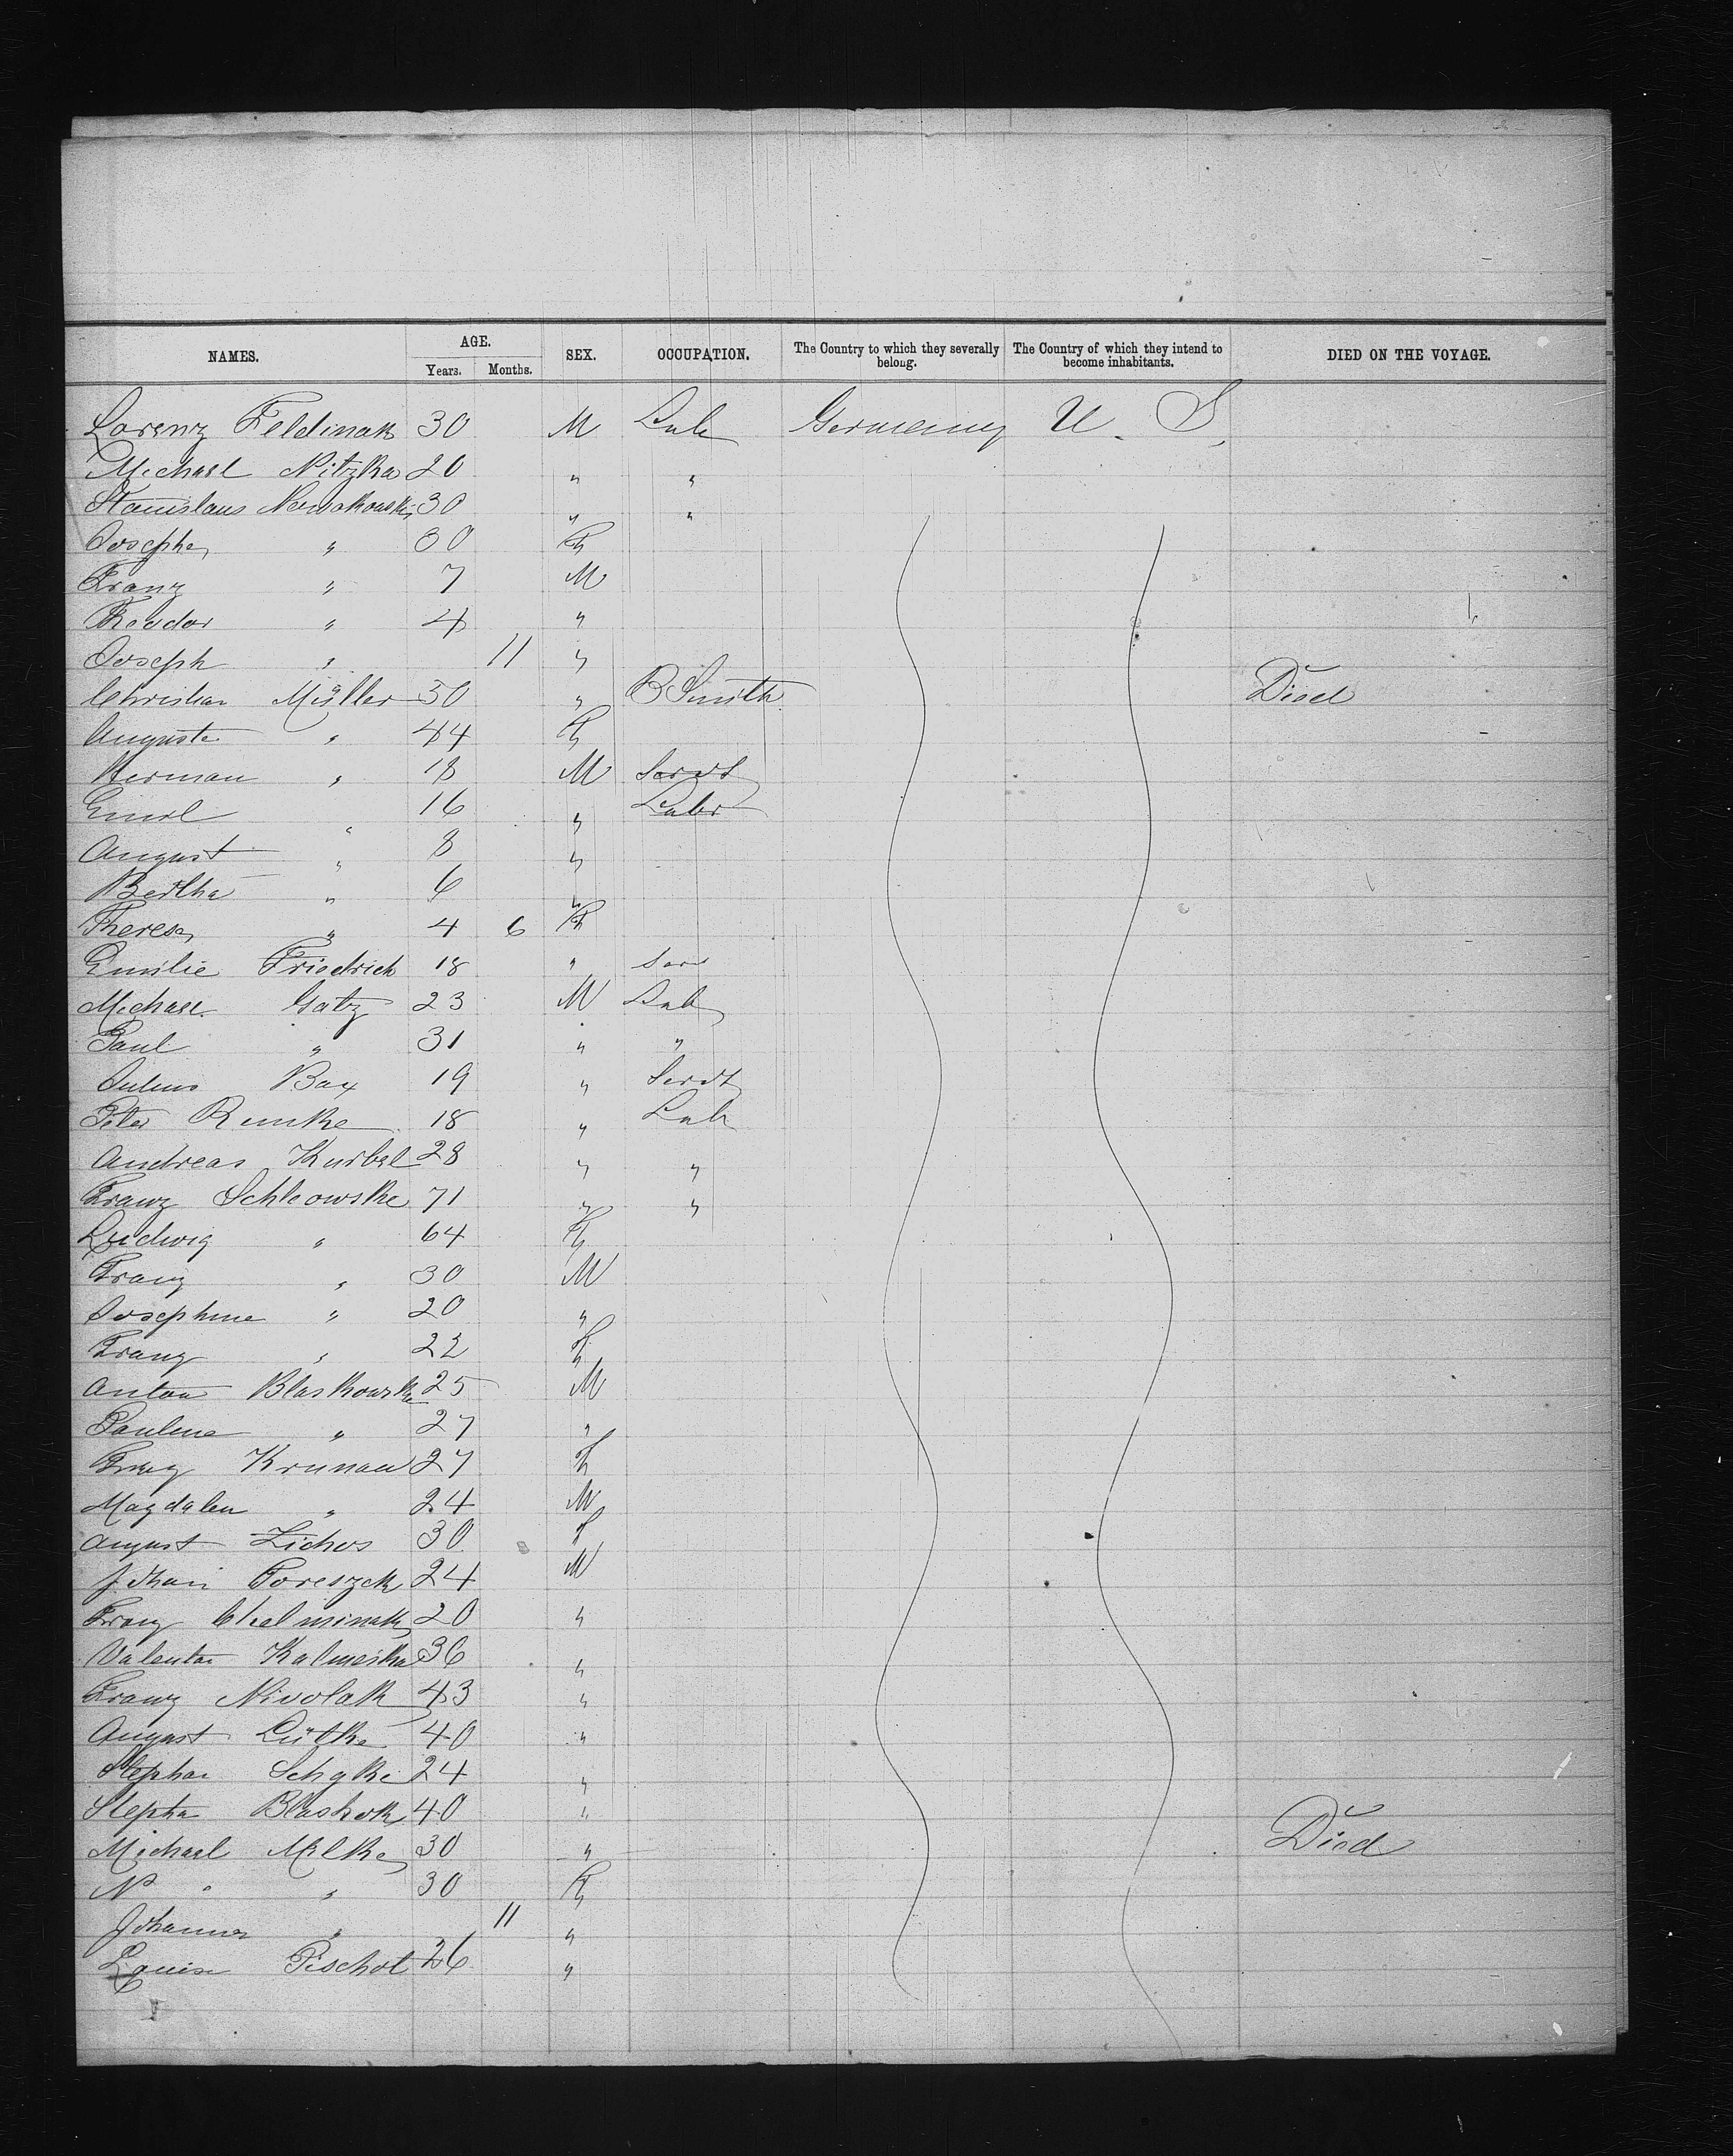 NAMES. AGE. SEX. OCCUPATION. The Country to which they severally belong. The Country of which they intend to become inhabitants. DIED ON THE VOYAGE.
Years. Months.
Lorenz Feldmak 30 M Lab Germany U. S.
Michael Nitzka 20 " "
Stanislaus Nowakowski 30 " "
Josepha " 30 F
Franz " 7 M
Theodor " 4 "
Joseph " 11 "
Christian Müller 50 " B Smith Died
Auguste " 44 F
Herman " 18 M Servt
Emil " 16 " Labr
August " 8 "
Bertha " 6 "
Theresa " 4 6 F
Emilie Friedrich 18 " Serv
Michael Gatz 23 M Lab
Paul " 31 " "
Julius Bax 19 " Servt
Peter Rumke 18 " Lab
Andreas Kurbel 28 " "
Franz Schleowske 71 " "
Ludwig " 64 F
Franz " 30 M
Josephine " 20 "
Franz " 22 F
Anton Blaskowska 25 M
Pauline " 27 "
Franz Krunau 27 F
Magdalen " 24 M
August Zichos 30 F
Johan Poreszek 24 M
Franz Chelminak 20 "
Valentin Kalmeska 36 "
Franz Nivolak 43 "
August Lütke 40 "
Stephan Schyke 24 "
Stepha Blashok 40 "
Michael Milke 30 " Died
N " " 30 F
Johanna " 11 "
Louise Pischol 26 "